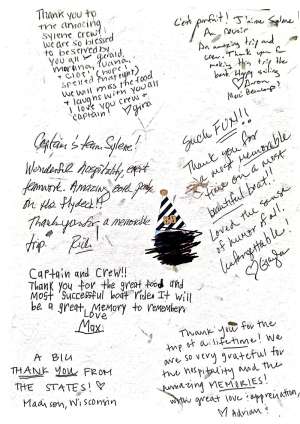 Thank you to
the amazing
Sylene crew!!
We are so blessed
to be served by
you all ~ Gerald,
Martina, Ivana,
+ Clot! (hope I
spelled that right)
We will miss the food
+ laughs with you all
I love you crew +
captain!
C'est parfait! J'aime Sylene!
Au revoir
An amazing trip and
crew. Thank you for
making this trip the
best. Happy sailing
Merci Beaucoup!
Such FUN!!
Thank you for
a most memorable
time on a most
beautiful boat!!
Loved the sense
of humor A.N.!
Unforgettable!
Captain's team Sylene!
Wonderful hospitality, expert
teamwork. Amazing
on
Thank you for a memorable
trip.
Captain and Crew!!
Thank you for the great food and
most successful boat ride. It will
be a great memory to remember.
Love
Max
Thank you for the
trip of a lifetime! We
are so very grateful for
the hospitality and the
amazing MEMORIES!
With great love + appreciation,
♡ Adrian!
A BIG
THANK YOU FROM
THE STATES! ♡
Madison, Wisconsin